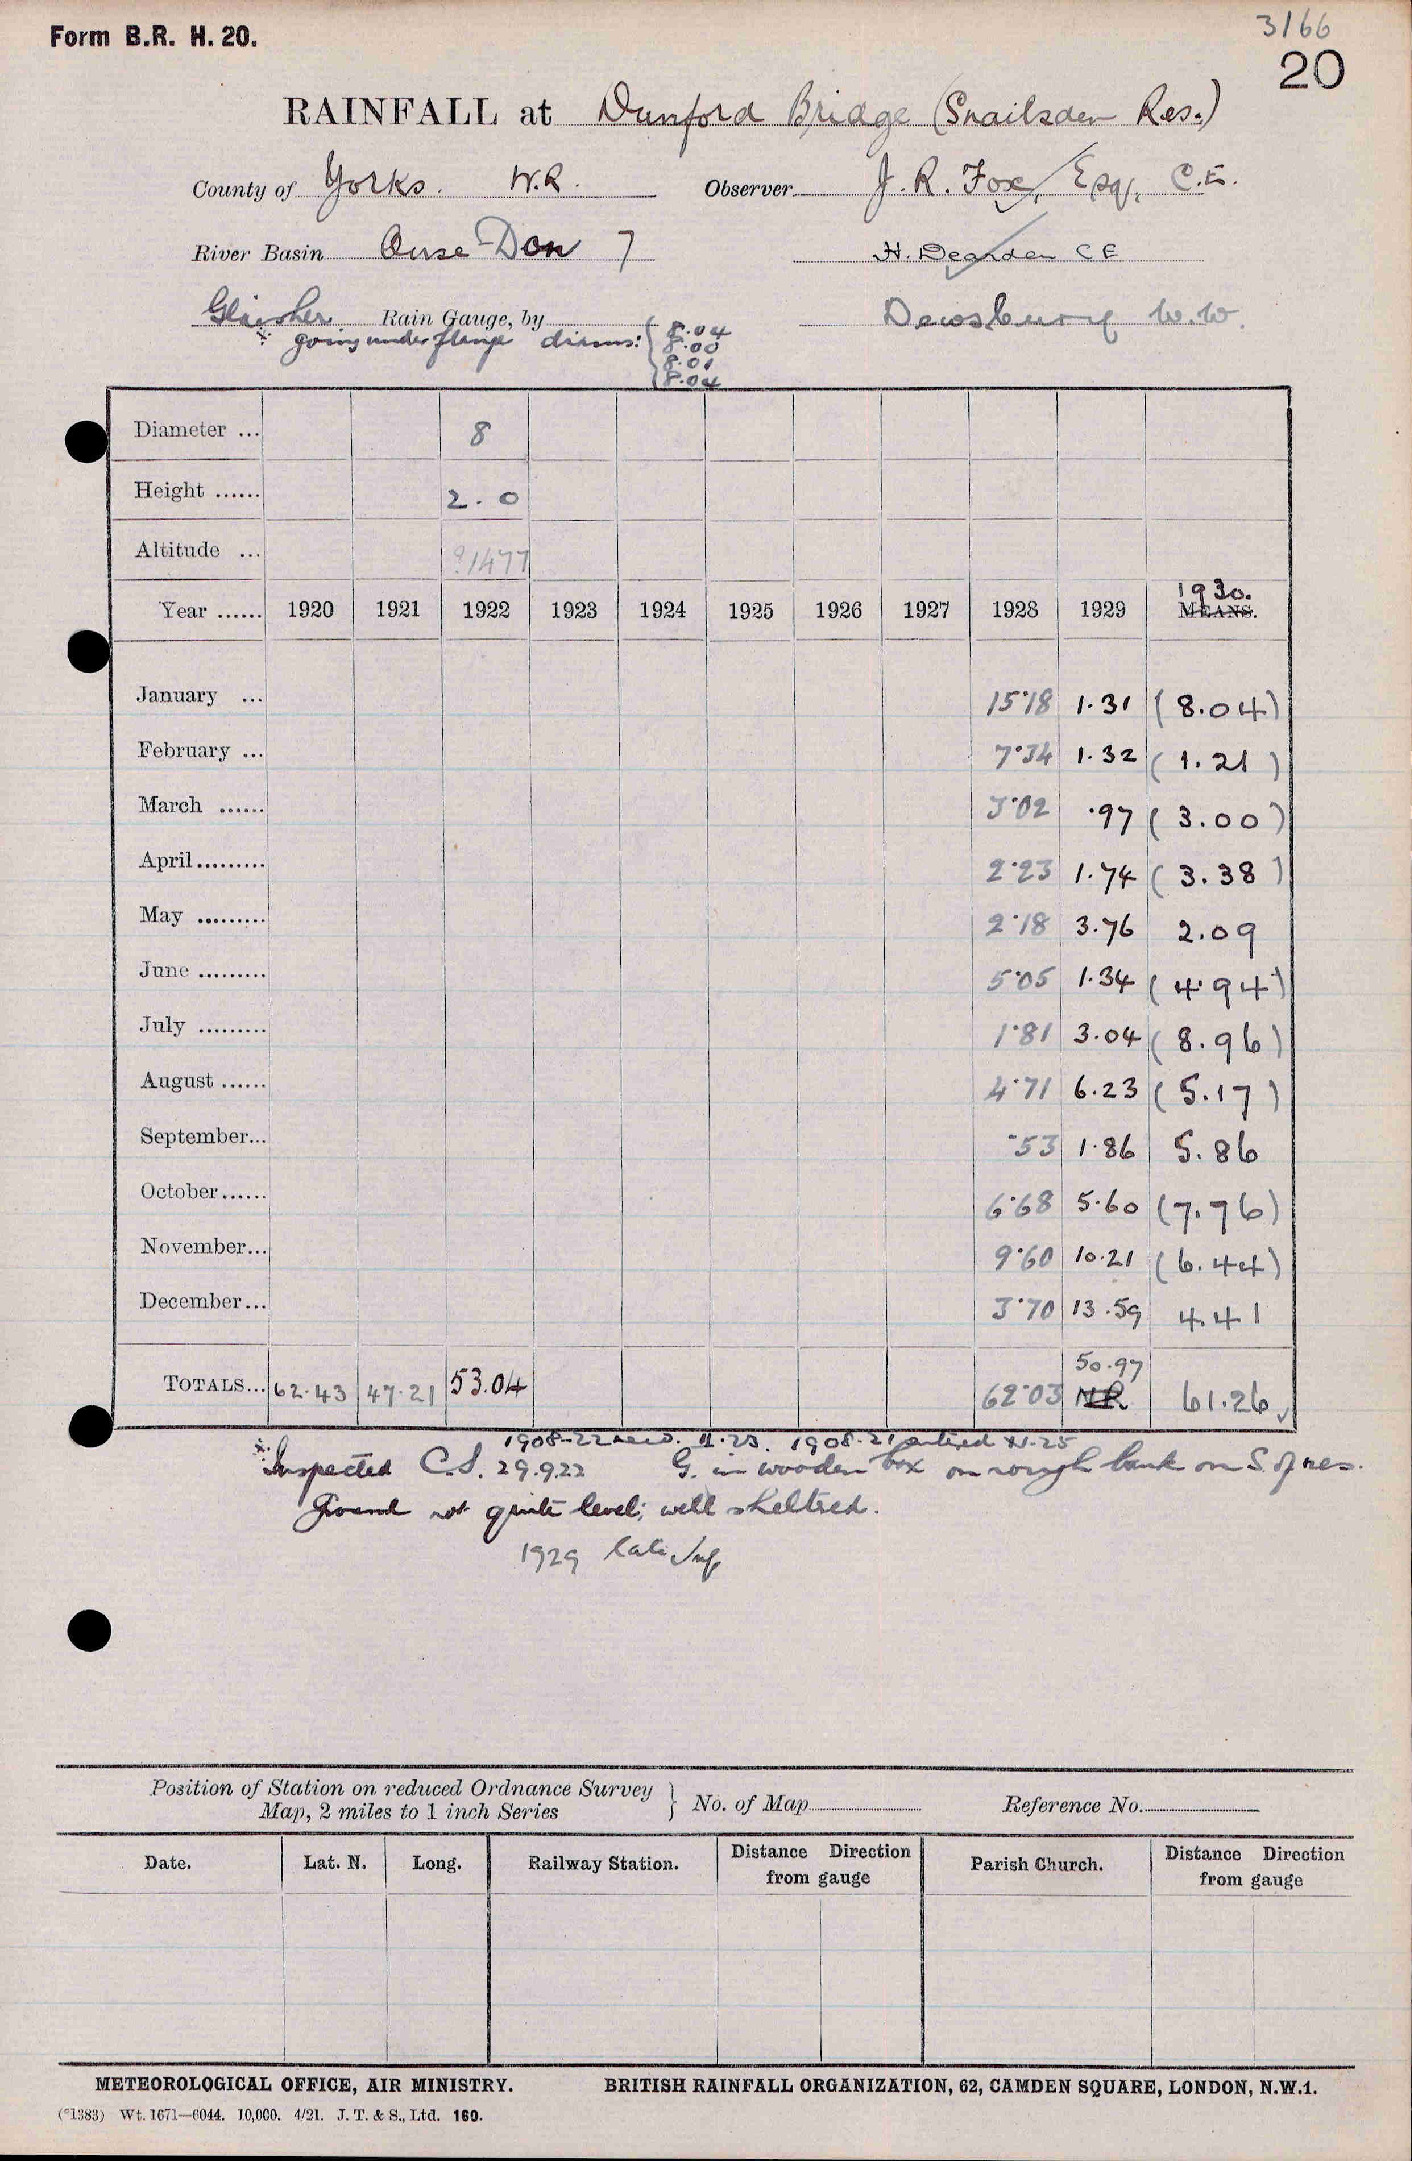 Form B.R. H. 20.
3166
20
RAINFALL at Dunford Bridge (Snailsden Res.)
County of Yorks. W.R. Observer J. R. Fox, Esq. C.E.
River Basin Ouse-Don 7 H. Dearden C E
Glaisher Rain Gauge, by Dewsbury W.W.
going under flange diams: 8.04
8.00
8.01
8.04
Diameter ... 8
Height ...... 2.0
Altitude ... ?1477
Year ...... 1920 1921 1922 1923 1924 1925 1926 1927 1928 1929 1930. MEANS.
January ... 15.18 1.31 (8.04)
February ... 7.34 1.32 (1.21)
March ...... 3.02 .97 (3.00)
April ......... 2.23 1.74 (3.38)
May ......... 2.18 3.76 2.09
June ......... 5.05 1.34 (4.94)
July ......... 1.81 3.04 (8.96)
August ...... 4.71 6.23 (5.17)
September... .53 1.86 5.86
October...... 6.68 5.60 (7.76)
November... 9.60 10.21 (6.44)
December... 3.70 13.59 4.41
50.97
TOTALS... 62.43 47.21 53.04 62.03 NR 61.26
1908-22 recd. 11.23. 1908-21 entered XI.25
Inspected C.S. 29.9.22 G. in wooden box on rough bank on S. of res.
Ground not quite level; well sheltred.
1929 late Inf
Position of Station on reduced Ordnance Survey
Map, 2 miles to 1 inch Series } No. of Map Reference No.
Date. Lat. N. Long. Railway Station. Distance Direction from gauge Parish Church. Distance Direction from gauge
METEOROLOGICAL OFFICE, AIR MINISTRY. BRITISH RAINFALL ORGANIZATION, 62, CAMDEN SQUARE, LONDON, N.W.1.
(*1383) Wt. 1671—6044. 10,000. 4/21. J. T. & S., Ltd. 160.